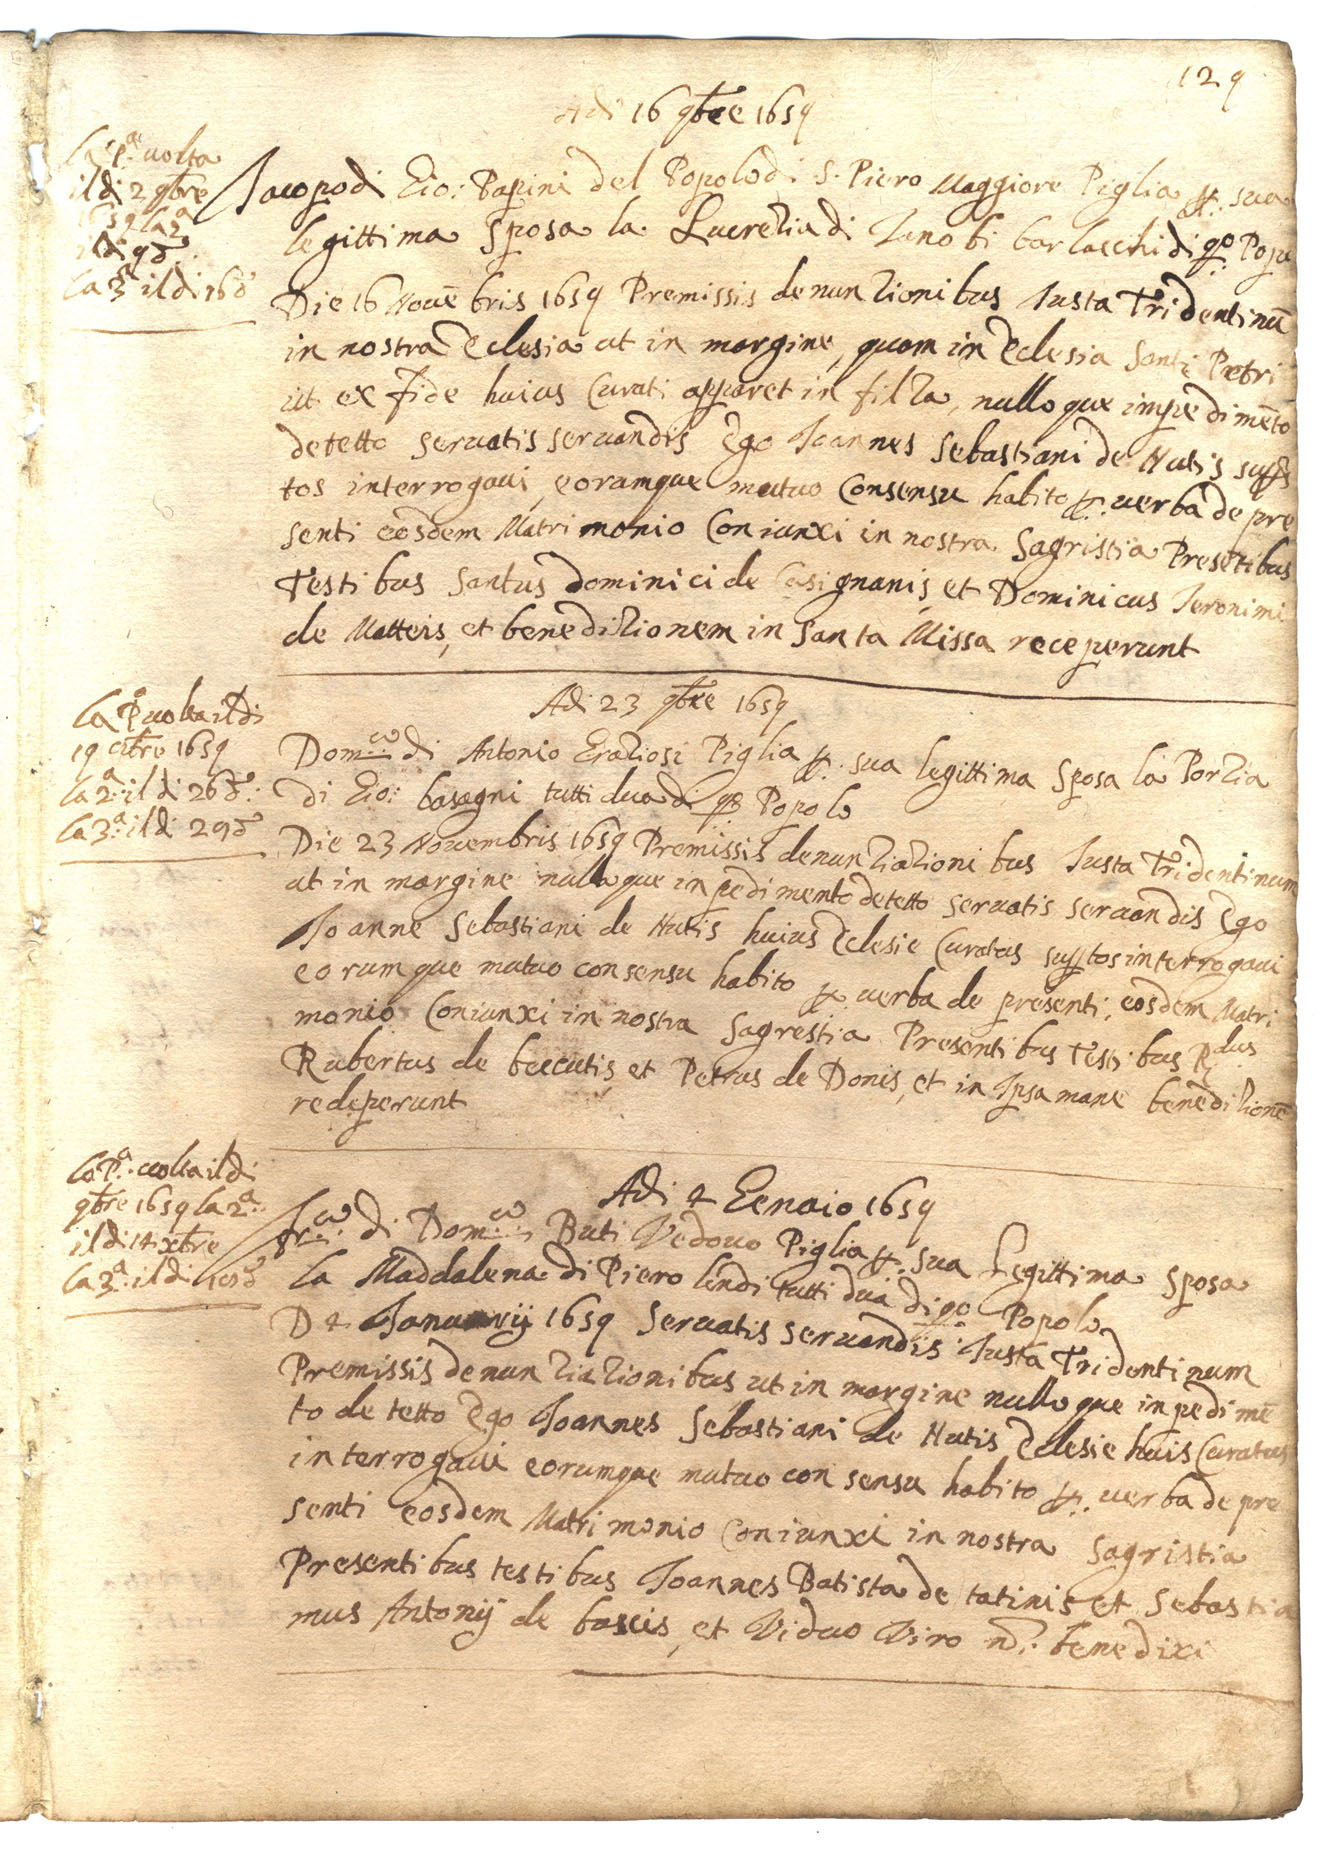 129
Adi 16 9bre 1659
La Pa uolta
il di 2 9bre
1659 la 2a
il di 9 do
la 3a il di 16 do
Iacopo di Gio: Papini del Popolo di S. Piero Maggiore Piglia p. sua
legittima sposa la Lucrezia di Zanobi barlacchi di qo Popo
Die 16 Nouēbris 1659 Premissis denunzionibus Iusta Tridentinū
in nostra Eclesia ut in margine, quam in Eclesia Santi Petri
ut ex fide huius Curati apparet in filza, nulloque impedimēto
detetto seruatis seruandis Ego Ioannes Sebastiani de Nutis supts
tos interrogaui, eorumque mutuo Consensu habito p. uerba de pre
senti eosdem Matrimonio Coniunxi in nostra Sagristia Presētibus
Testibus Santus Dominici de Casignanis, et Dominicus Ieronimi
de Matteis, et benedizionem in Santa Missa receperunt
Adi 23 9bre 1659
La Pa uolta il di
19 8tbre 1659
la 2a: il di 26 do:
la 3a: il di 29 do
Domco di Antonio Graziosi Piglia p. sua legittima sposa la Porzia
di Gio: basagni tutti dua di qo Popolo
Die 23 Nouembris 1659 Premissis denunziazionibus Iusta Tridentinum
ut in margine nulloque inpedimento detetto seruatis seruandis Ego
Ioanne Sebastiani de Nutis huius Eclesie Curatus suptos interrogaui
eorumque mutuo consensu habito p. uerba de presenti, eosdem Matri
monio Coniunxi in nostra Sagrestia Presentibus Testibus Rdus
Rubertus de beccutis, et Petrus de Donis, et in Ipsa mane benedizionē
receperunt
Adi 4 Genaio 1659
La Pa: uolta il di
9bre 1659 la 2a:
il di 14 xbre
la 3a: il di do
Frco di Domco: Buti Vedouo Piglia p. sua Legittima sposa
la Maddalena di Piero lendi tutti dua di qo Popolo
D 4 Ianuarij 1659 Seruatis seruandis Iusta Tridentinum
Premissis denunziazionibus ut in margine nulloque inpedimē
to detetto Ego Ioannes Sebastiani de Nutis Eclesie huis Curatus
interrogaui eorumque mutuo consensu habito p. uerba de pre
senti eosdem Matrimonio Coniunxi in nostra Sagristia
Presentibus testibus Ioannes Batista de tatinis et Sebastia
mus Antonij de bascis, et Viduo Viro nō: benedixi